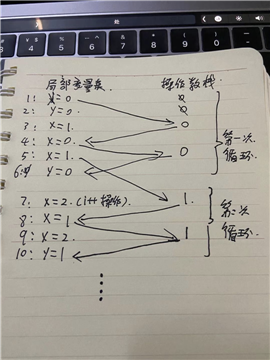 局部变量表 操作数栈
1: X=0 0
2: Y=0 0
3: X=1. 0
4: X=0.
5: X=1 0
6: Y=0
第一次循环.
7. X=2. (i++操作). 1.
8: X=1
9: X=2. 1
10: Y=1
第二次循环.